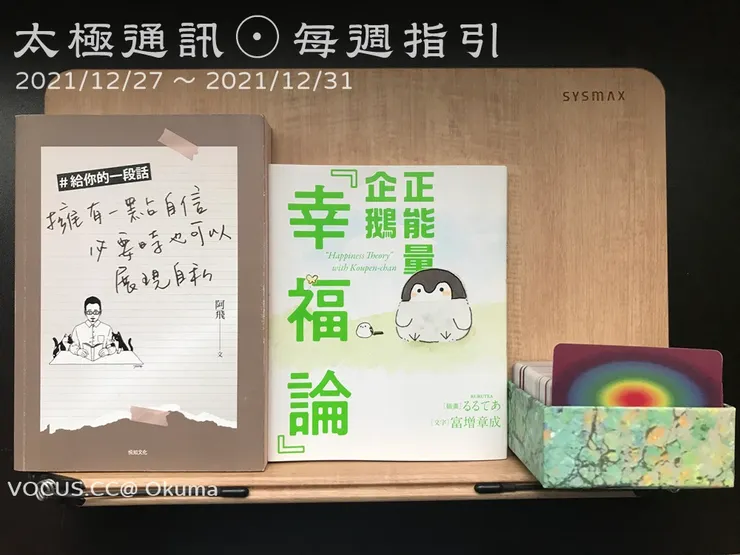 太極通訊☉每週指引
2021/12/27 ～ 2021/12/31
SYSMAX
#給你的一段話
擁有一點自信
必要時也可以
展現自私
阿飛 文
悦知文化
正能量
企鵝
『幸福論』
"Happiness Theory"
with Koupen-chan
RURUTEA
〔繪畫〕るるてあ
〔文字〕富增章成
VOCUS.CC@ Okuma